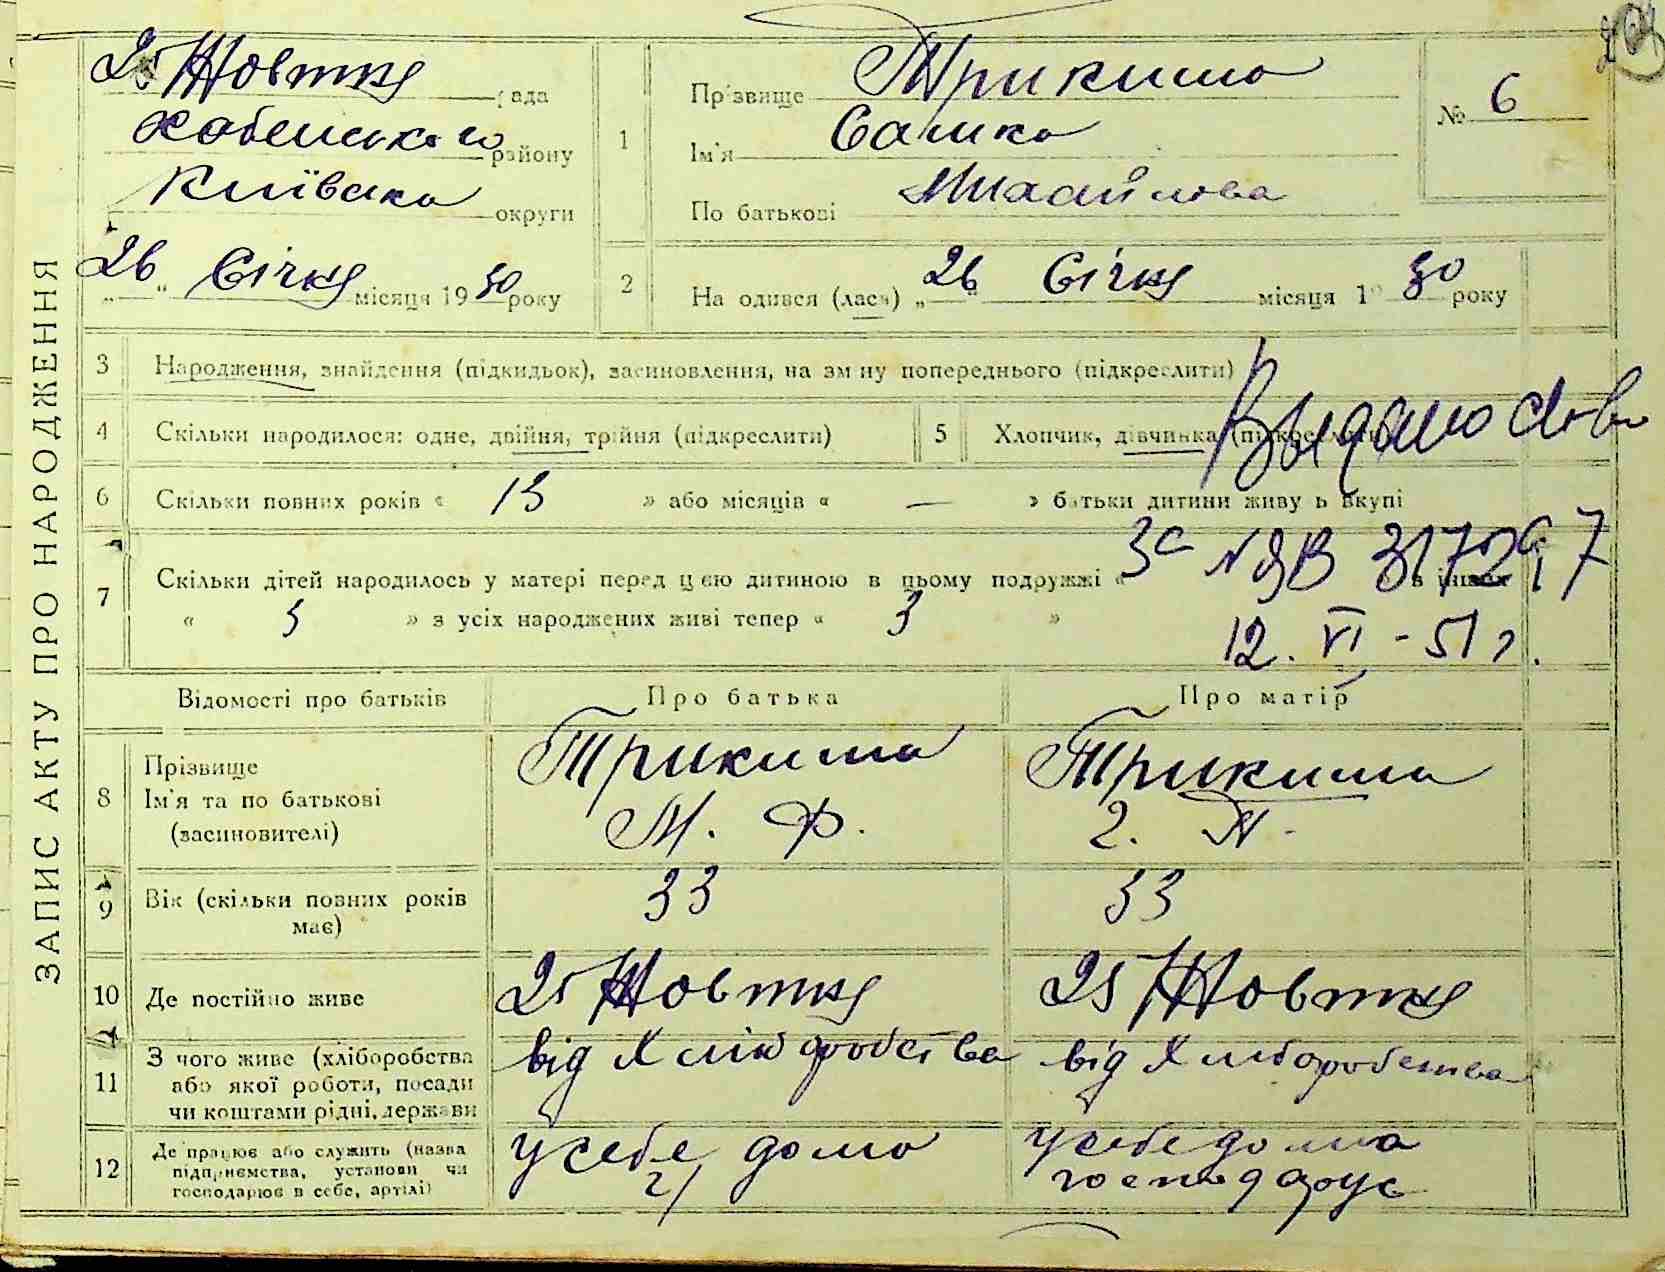 25 Жовтня рада
Хабенського району
Київська округи
26 „ Січня місяця 1930 року
1
Прізвище Трикиша
Ім'я Сашка
По батькові Михайлова
№ 6
2
На одився (лася) „ 26 „ Січня місяця 19 30 року
ЗАПИС АКТУ ПРО НАРОДЖЕННЯ
3 Народження, знайдення (підкидьок), засиновлення, на зміну попереднього (підкреслити)
4 Скільки народилося: одне, двійня, трійня (підкреслити)
5 Хлопчик, дівчинка (підкреслити)
Выдано св-во
6 Скільки повних років « 13 » або місяців « — » батьки дитини живуть вкупі
за № ЯВ 317297
7 Скільки дітей народилось у матері перед цією дитиною в цьому подружжі « в інших
« 5 » з усіх народжених живі тепер « 3 »
12. VI - 51 г.
Відомості про батьків
Про батька
Про матір
8 Прізвище
Ім'я та по батькові
(засиновителі)
Трикиша
М. Ф.
Трикиша
Г. П.
9 Вік (скільки повних років
має)
33
33
10 Де постійно живе
25 Жовтня
25 Жовтня
11 З чого живе (хліборобства
або якої роботи, посади
чи коштами рідні, держави
від Хліборобства
від Хліборобства
12 Де працює або служить (назва
підприємства, установи чи
господарює в себе, артілі)
у себе дома
у себе дома
господарує